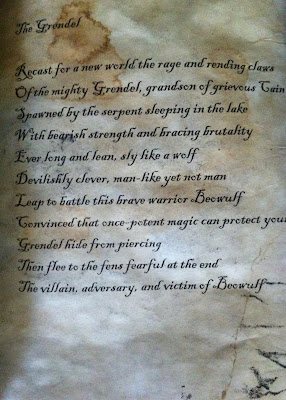 The Grendel
Recast for a new world the rage and rending claws
Of the mighty Grendel, grandson of grievous Cain
Spawned by the serpent sleeping in the lake
With bearish strength and bracing brutality
Ever long and lean, sly like a wolf
Devilishly clever, man-like yet not man
Leap to battle this brave warrior Beowulf
Convinced that once-potent magic can protect your
Grendel hide from piercing
Then flee to the fens fearful at the end
The villain, adversary, and victim of Beowulf